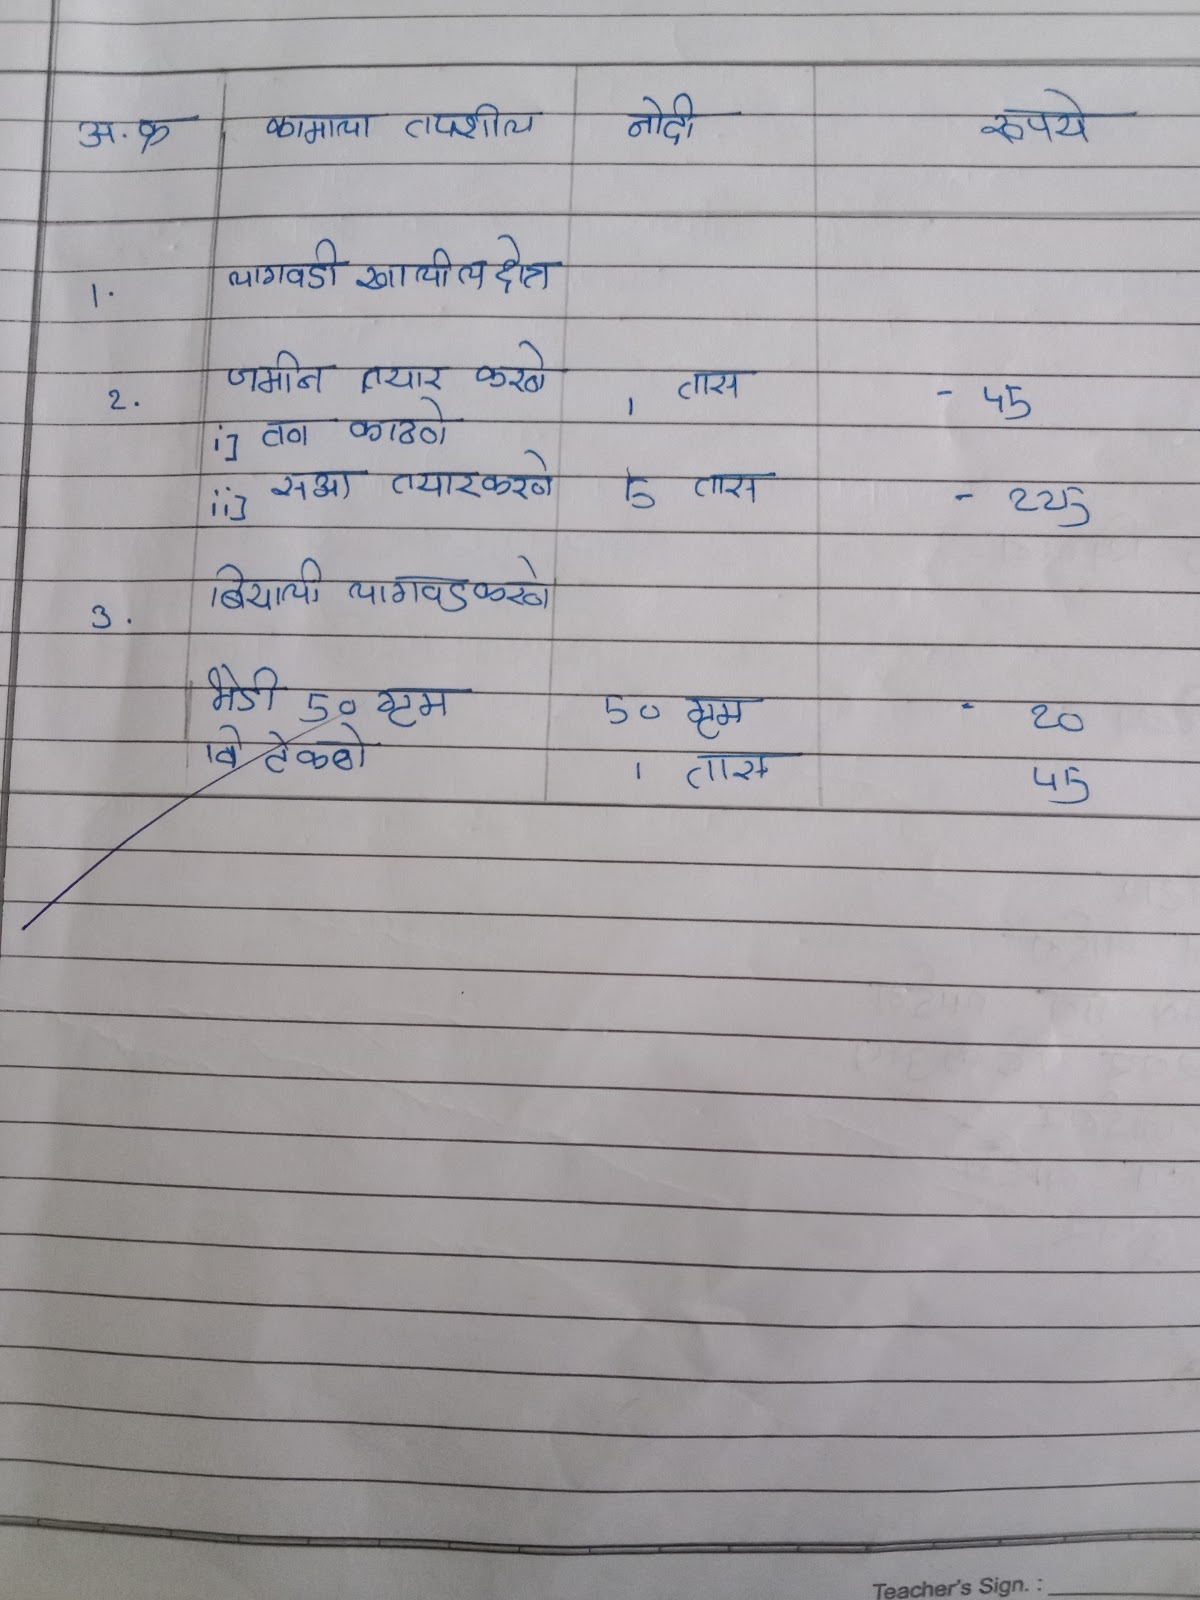 अ.क्र कामाचा तपशील नोंदी रुपये
1. लागवडी खालील क्षेत्र
2. जमीन तयार करणे 1 तास - 45
i] तण काढणे
ii] सऱ्या तयार करणे 5 तास - 225
3. बियाची लागवड करणे
भेंडी 50 ग्रॅम 50 ग्रॅम - 20
बि टोकणे 1 तास 45
Teacher's Sign. :